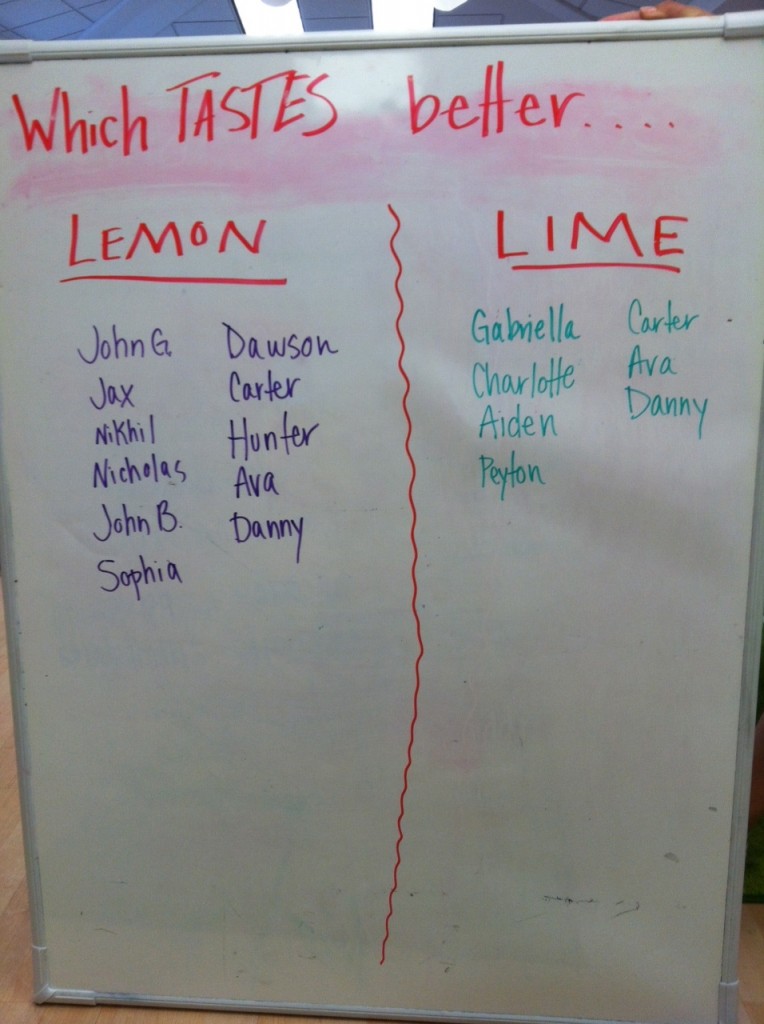 Which TASTES better....
LEMON
John G.
Jax
Nikhil
Nicholas
John B.
Sophia
Dawson
Carter
Hunter
Ava
Danny
LIME
Gabriella
Charlotte
Aiden
Peyton
Carter
Ava
Danny